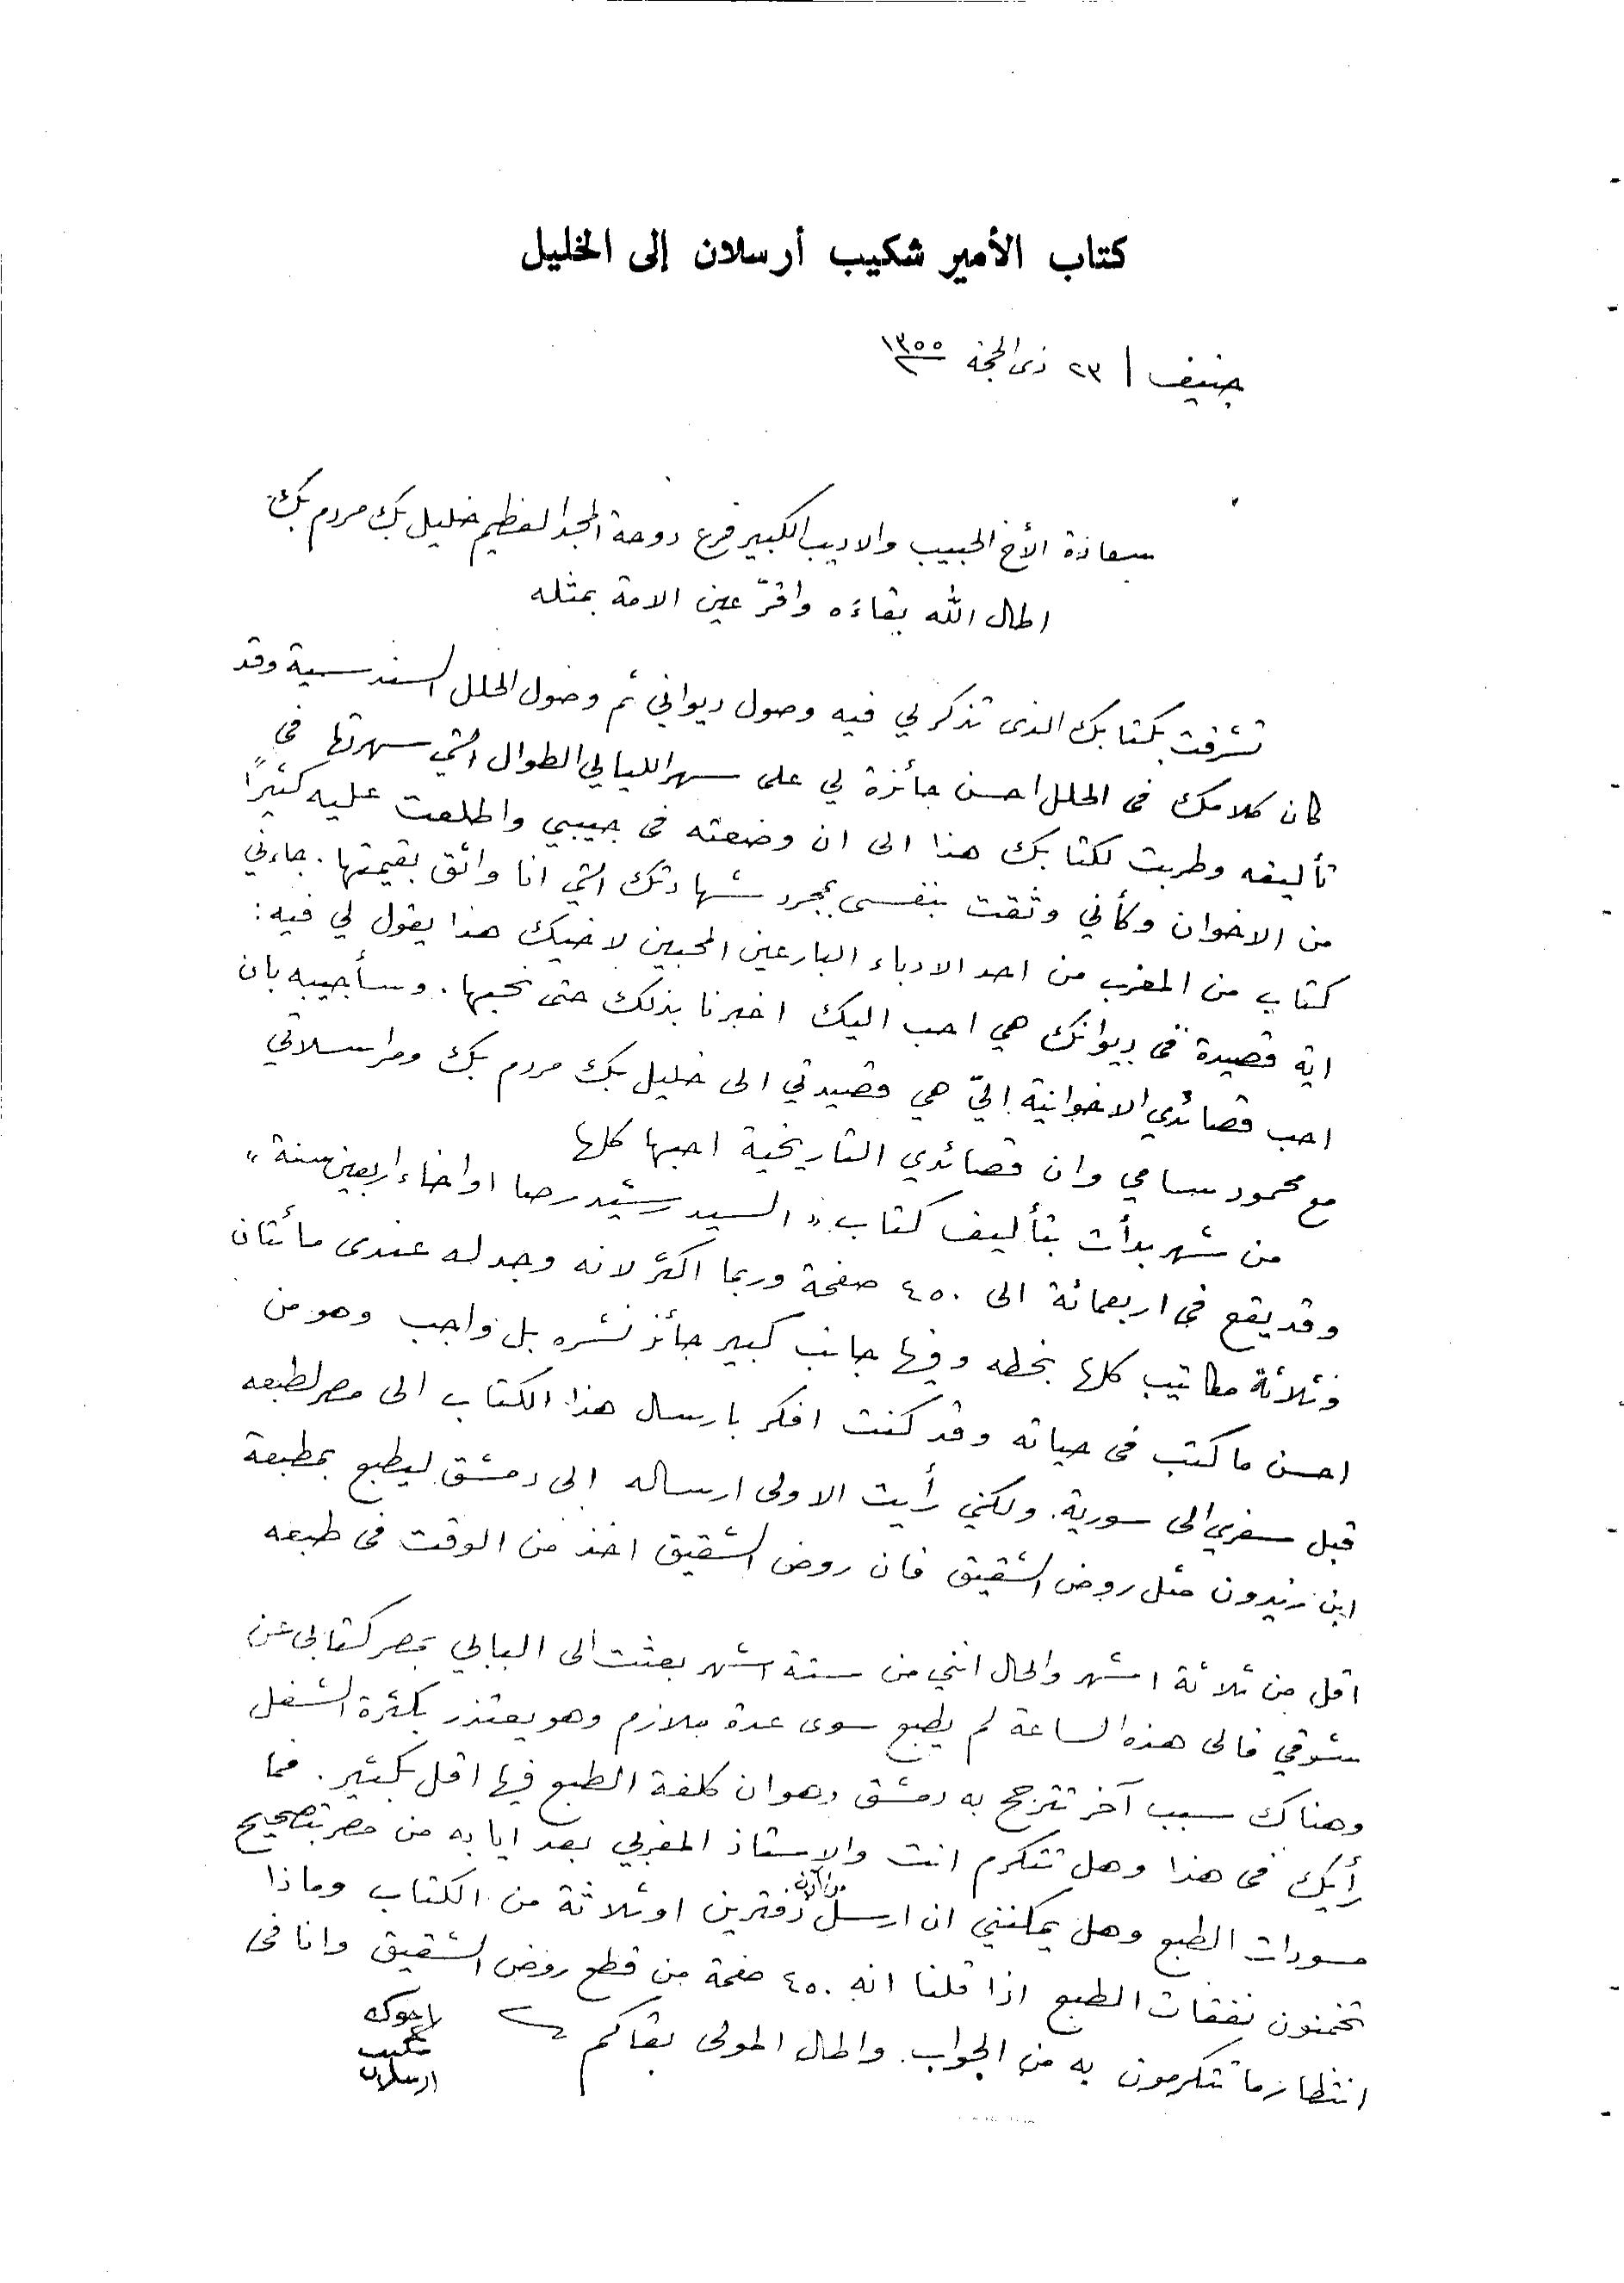 كتاب الأمير شكيب أرسلان إلى الخليل
جنيف / ٢٣ ذى الحجة ١٣٥٥
سعادة الأخ الحبيب والاديب الكبير فرع دوحة المجد العظيم خليل بك مردم بك
اطال الله بقاءه واقرّ عين الامة بمثله
تشرفت بكتابك الذى تذكر لي فيه وصول ديواني ثم وصول الحلل السندسية وقد
كان كلامك فى الحلل احسن جائزة لي على سهر الليالي الطوال التي سهرتها فى
تأليفه وطربت لكتابك هذا الى ان وضعته فى جيبي واطلعت عليه كثيرًا
من الاخوان وكأني وثقت بنفسى بمجرد شهادتك التي انا واثق بقيمتها. جاءني
كتاب من المغرب من احد الادباء البارعين المحبين لاخيك هذا يقول لي فيه:
اية قصيدة فى ديوانك هي احب اليك اخبرنا بذلك حتى نحبها. وسأجيبه بان
احب قصائدي الاخوانية اليّ هي قصيدتي الى خليل بك مردم بك ومراسلاتي
مع محمود سامي وان قصائدي التاريخية احبها كلها
من شهر بدأت بتأليف كتاب «السيد رشيد رضا او اخاء اربعين سنة»
وقد يقع فى اربعمائة الى ٤٥٠ صفحة وربما اكثر لانه وجد له عندى مائتان
وثلاثة مكاتيب كلها بخطه وفيها جانب كبير جائز نشره بل واجب وهو من
احسن ما كتب فى حياته وقد كنت افكر بارسال هذا الكتاب الى مصر لطبعه
قبل سفري الى سورية. ولكني رأيت الاولى ارساله الى دمشق ليطبع بمطبعة
ابن زيدون مثل روض الشقيق فان روض الشقيق اخذ من الوقت فى طبعه
اقل من ثلاثة اشهر والحال انني من ستة اشهر بعثت الى البابي بمصر كتابى عن
شوقي فالى هذه الساعة لم يطبع سوى عدة ملازم وهو يعتذر بكثرة الشغل
وهناك سبب آخر تترجح به دمشق وهو ان كلفة الطبع فيها اقل بكثير. فما
رأيك فى هذا وهل تتكرم انت والاستاذ المغربي بعد ايابه من مصر بتصحيح
مسودات الطبع وهل يمكنني ان ارسل من الآن دفترين او ثلاثة من الكتاب وماذا
تخمنون نفقات الطبع اذا قلنا انه ٤٥٠ صفحة من قطع روض الشقيق وانا فى
انتظار ما تتكرمون به من الجواب. واطال المولى بقاكم
اخوك
شكيب
ارسلان